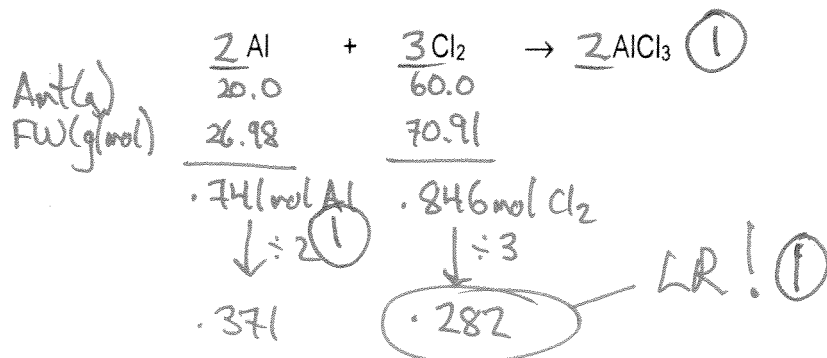 2 Al + 3 Cl₂ → 2 AlCl₃ ①
Amt(g) 20.0 60.0
FW(g/mol) 26.98 70.91
.741 mol Al .846 mol Cl₂
÷2 ① ÷3
.371 .282 LR! ①